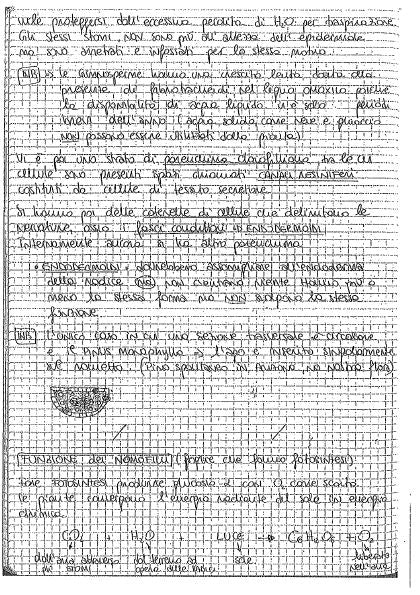 vuole proteggersi dall'eccessiva perdita di H2O per traspirazione.
Gli stessi stomi NON sono più all'altezza dell'epidermide
ma sono arretrati e infossati per lo stesso motivo.
NB le Gimnosperme hanno una crescita lenta dovuta alla
presenza di fibrotracheidi nel legno omoxilo poiché
la disponibilità di acqua liquida vi è solo periodi
brevi dell'anno (acqua solida come neve e ghiaccio
NON possono essere utilizzati dalla pianta)
Vi è poi uno strato di parenchima clorofilliano, tra le cui
cellule sono presenti spazi chiamati CANALI RESINIFERI
costituiti da cellule di tessuto secretore.
Si hanno poi delle cellule che delimitano le
nervature, ossia i fasci conduttori → ENDODERMOIDI
Internamente ancora si ha altro parenchima
• ENDODERMOIDI: dovrebbero assomigliare all'endoderma
della radice NON hanno più o
meno la stessa forma ma NON svolgono la stessa
funzione.
NB L'unico caso in cui una sezione trasversale è circolare
è il PINUS Monophylla → l'ago è inserito singolarmente
sul rametto. (Pino spontaneo in America, no nostra flora)
FUNZIONE dei NOMOFILLI (foglie che fanno fotosintesi)
FOTOSINTESI produrre glucosio con O2 come scarto.
le piante convertono l'energia radiante del sole in energia
chimica.
CO2 + H2O + LUCE → C6H12O6 + O2
dall'aria attraverso dal terreno ad sole liberato
gli stomi opera delle radici nell'aria